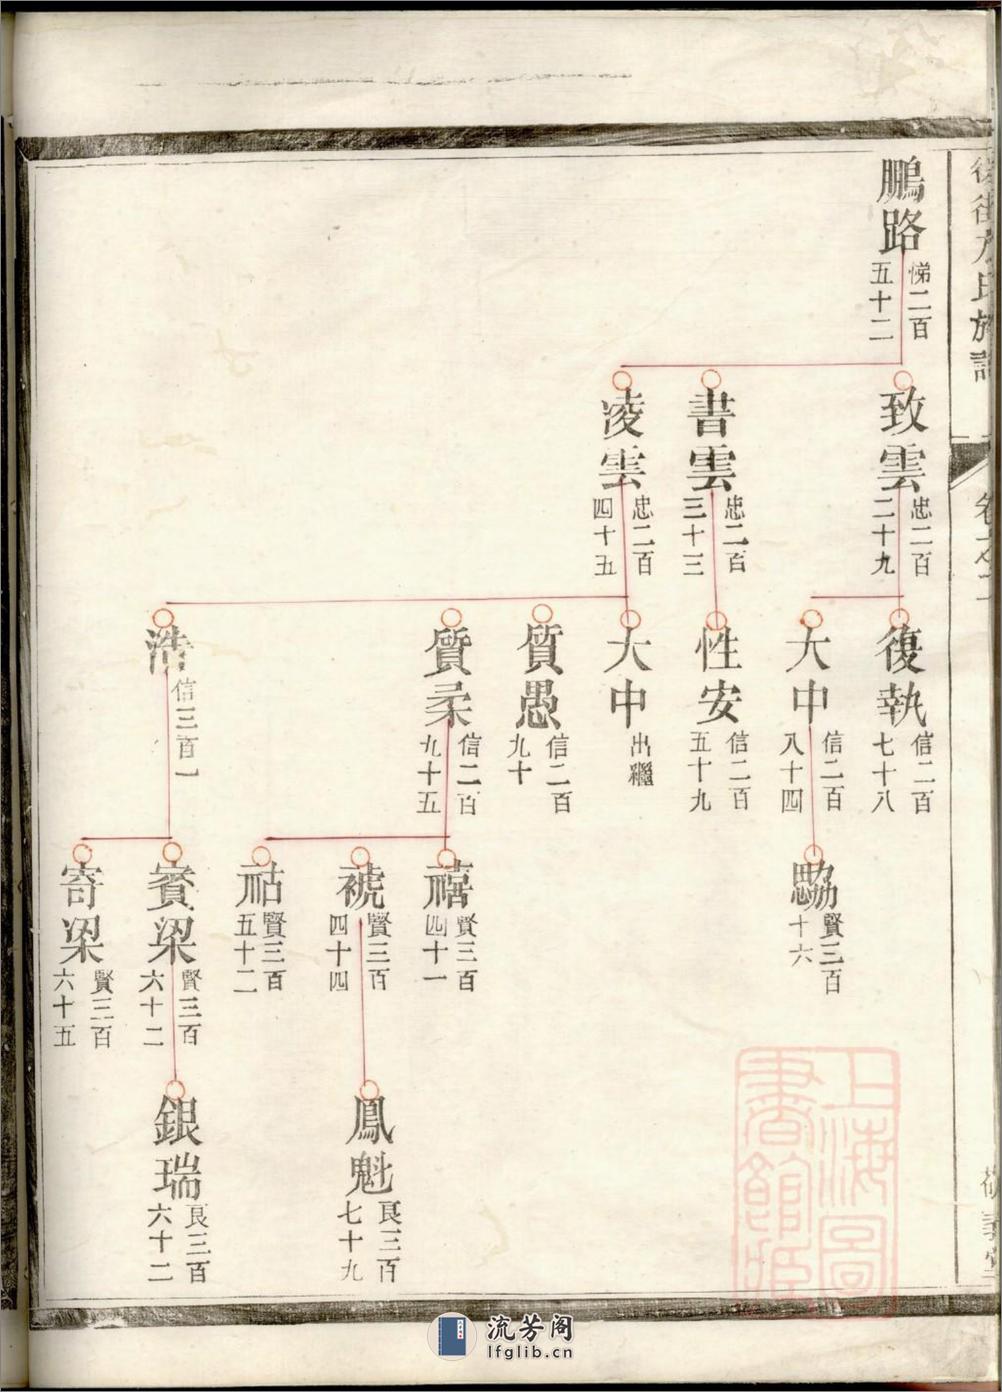 鵬路
悌二百
五十二
致雲
忠二百
二十九
書雲
忠二百
三十三
凌雲
忠二百
四十五
復執
信二百
七十八
大中
信二百
八十四
性安
信二百
五十九
大中
出繼
質愚
信二百
九十
質柔
信二百
九十五
浩
信三百一
勰
賢三百
十六
禧
賢三百
四十一
褫
賢三百
四十四
祜
賢三百
五十二
賓梁
賢三百
六十二
寄梁
賢三百
六十五
鳳魁
良三百
七十九
銀瑞
良三百
六十二
氏族譜
卷之
上海圖
書館藏
流芳阁
lfglib.cn